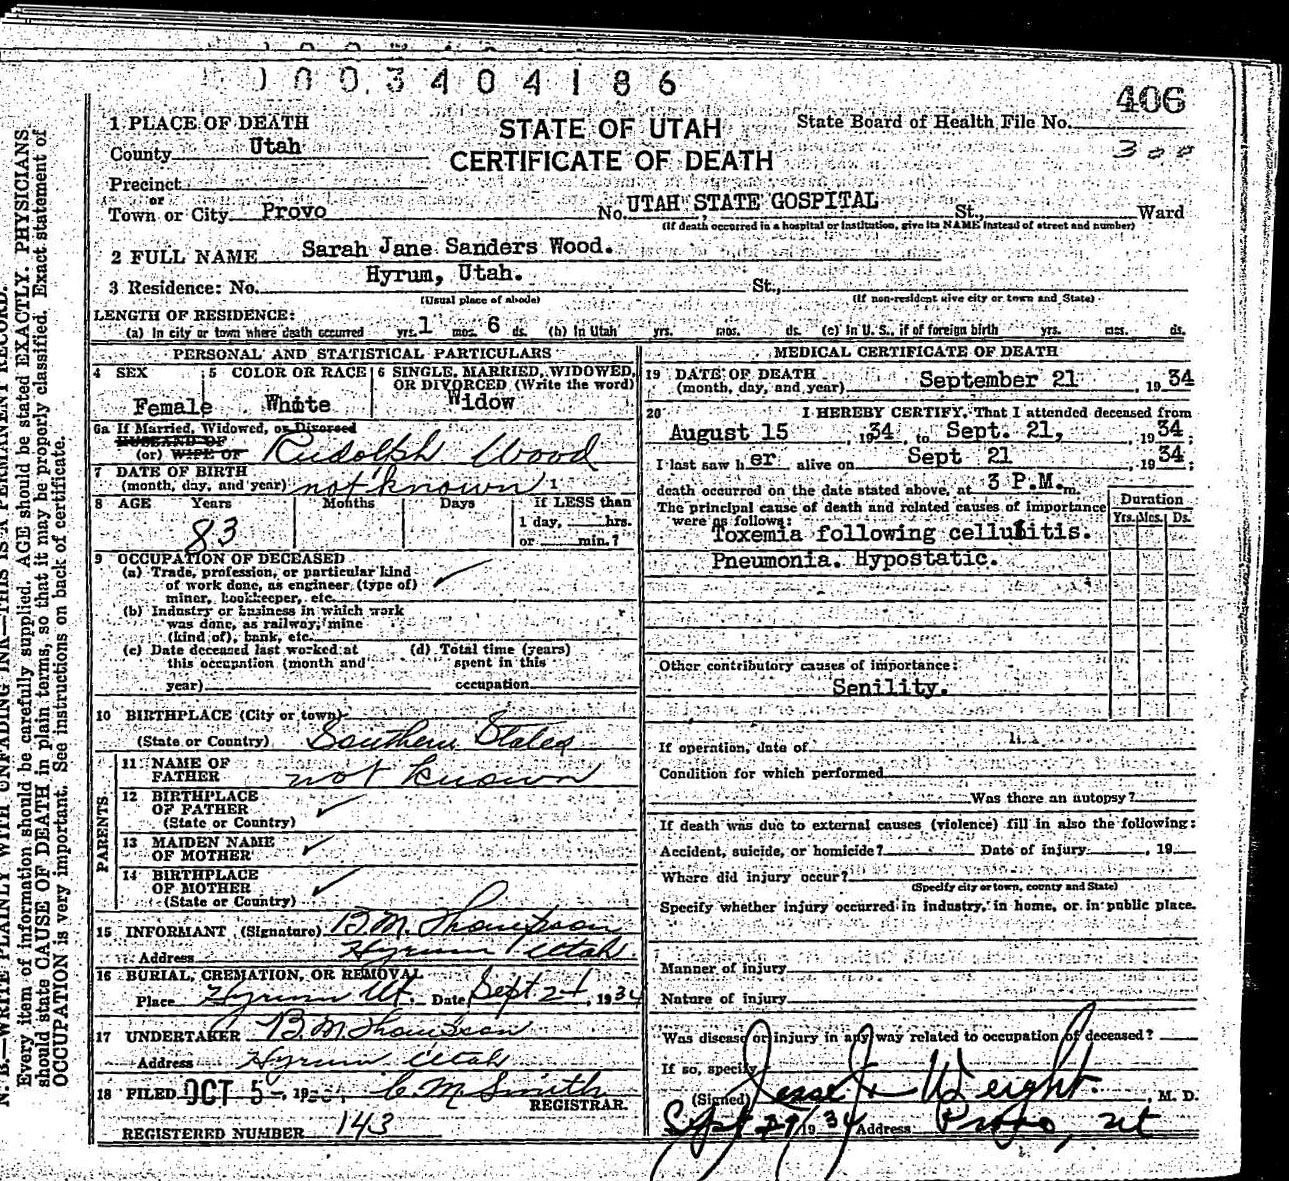 1003404186
406
1 PLACE OF DEATH
STATE OF UTAH
State Board of Health File No.
County Utah
CERTIFICATE OF DEATH
300
Precinct
or
Town or City Provo No. UTAH STATE GOSPITAL St., Ward
(If death occurred in a hospital or institution, give its NAME instead of street and number)
2 FULL NAME Sarah Jane Sanders Wood.
3 Residence: No. Hyrum, Utah. St.,
(Usual place of abode) (If non-resident give city or town and State)
LENGTH OF RESIDENCE:
(a) In city or town where death occurred yrs. 1 mos. 6 ds. (b) In Utah yrs. mos. ds. (c) In U. S., if of foreign birth yrs. mos. ds.
PERSONAL AND STATISTICAL PARTICULARS
4 SEX 5 COLOR OR RACE 6 SINGLE, MARRIED, WIDOWED, OR DIVORCED (Write the word)
Female White Widow
6a If Married, Widowed, or Divorced
HUSBAND OF
(or) WIFE OF Rudolph Wood
7 DATE OF BIRTH
(month, day, and year) not known 1
8 AGE Years Months Days If LESS than
1 day, hrs.
83 or min.?
9 OCCUPATION OF DECEASED
(a) Trade, profession, or particular kind
of work done, as engineer (type of)
miner, bookkeeper, etc.
(b) Industry or business in which work
was done, as railway, mine
(kind of), bank, etc.
(c) Date deceased last worked at (d) Total time (years)
this occupation (month and spent in this
year) occupation
10 BIRTHPLACE (City or town)
(State or Country) Southern States
PARENTS
11 NAME OF
FATHER not known
12 BIRTHPLACE
OF FATHER
(State or Country)
13 MAIDEN NAME
OF MOTHER
14 BIRTHPLACE
OF MOTHER
(State or Country)
15 INFORMANT (Signature) B.M. Thompson
Address Hyrum Utah
16 BURIAL, CREMATION, OR REMOVAL
Place Hyrum Ut. Date Sept 24, 1934
17 UNDERTAKER B.M. Thompson
Address Hyrum Utah
18 FILED OCT 5 - 19 C M Smith
REGISTRAR.
REGISTERED NUMBER 143
MEDICAL CERTIFICATE OF DEATH
19 DATE OF DEATH
(month, day, and year) September 21, 1934
20 I HEREBY CERTIFY, That I attended deceased from
August 15, 1934, to Sept. 21, 1934;
I last saw her alive on Sept 21, 1934;
death occurred on the date stated above, at 3 P.M. m.
The principal cause of death and related causes of importance
were as follows:
Duration
Yrs. Mos. Ds.
Toxemia following cellulitis.
Pneumonia. Hypostatic.
Other contributory causes of importance:
Senility.
If operation, date of
Condition for which performed
Was there an autopsy?
If death was due to external causes (violence) fill in also the following:
Accident, suicide, or homicide? Date of injury , 19
Where did injury occur?
(Specify city or town, county and State)
Specify whether injury occurred in industry, in home, or in public place.
Manner of injury
Nature of injury
Was disease or injury in any way related to occupation of deceased?
If so, specify
(Signed) Jesse J. Weight. , M. D.
Sept 29/1934 Address Provo, Ut
N. B.—WRITE PLAINLY WITH UNFADING INK—THIS IS A PERMANENT RECORD.
Every item of information should be carefully supplied. AGE should be stated EXACTLY. PHYSICIANS
should state CAUSE OF DEATH in plain terms, so that it may be properly classified. Exact statement of
OCCUPATION is very important. See instructions on back of certificate.